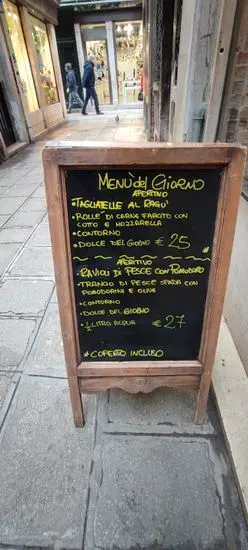 Menù del Giorno
APERITIVO
• TAGLIATELLE AL RAGU'
• ROLLE' DI CARNE FARCITO CON
COTTO E MOZZARELLA
• CONTORNO
• DOLCE DEL GIORNO € 25
APERITIVO
• RAVIOLI DI PESCE CON POMODORO
• TRANCIO DI PESCE SPADA CON
POMODORINI E OLIVE
• CONTORNO
• DOLCE DEL GIORNO
• ½ LITRO ACQUA € 27
* COPERTO INCLUSO